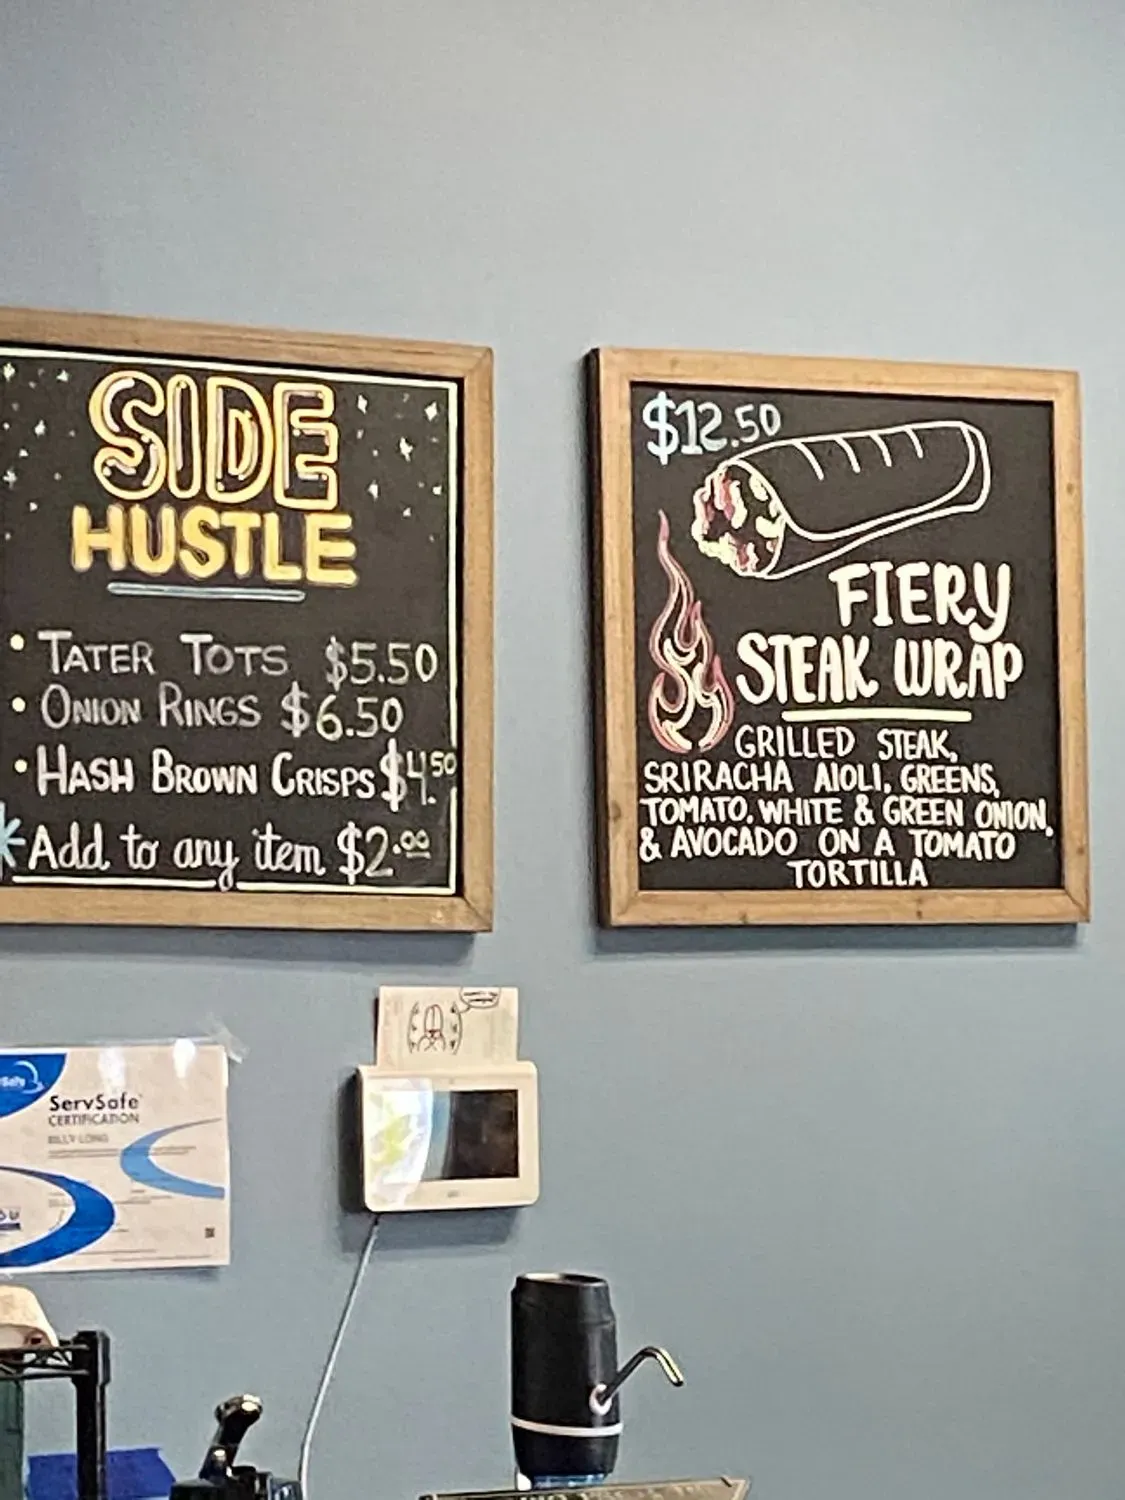 SIDE
HUSTLE
• TATER TOTS $5.50
• ONION RINGS $6.50
• HASH BROWN CRISPS $4.50
*Add to any item $2.00
$12.50
FIERY
STEAK WRAP
GRILLED STEAK,
SRIRACHA AIOLI, GREENS,
TOMATO, WHITE & GREEN ONION,
& AVOCADO ON A TOMATO
TORTILLA
ServSafe
CERTIFICATION
BILLY LONG